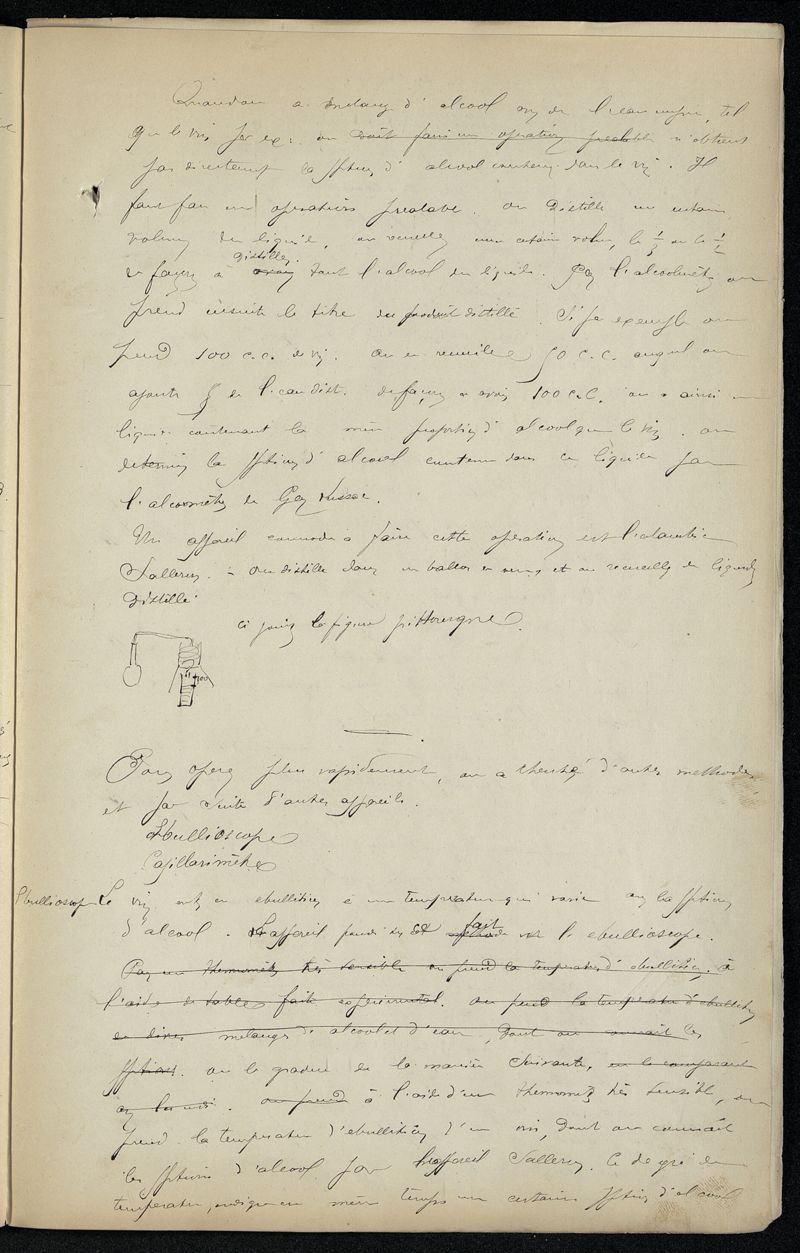 Quand on a mélang d'alcool av de l'eau impure, tel
que le vin, par ex: on doit faire un opération préalable n'obtient
pas directement la pption d'alcool contenu dans le vin. Il
faut faire une opération préalable. on distille un certain
volume de liquide, on recueille un certain volume, le 1/3 ou le 1/2
de façon à avoir distiller tout l'alcool du liquide. Par l'alcoomètre on
prend ensuite le titre du produit distillé. Si par exemple on
prend 100 c.c. de vin. on en recueille 50 c.c. auquel on
ajoute de l'eau dist. de façon a avoir 100 c.c. on a ainsi un
liquide contenant la même proportion d'alcool que le vin. on
détermine la pption d'alcool contenu dans ce liquide par
l'alcoomètre de Gay Lussac.
Un appareil commode a faire cette opération est l'alambic
Salleron. - On distille dans un ballon en verre et on recueille le liquide
distillé.
ci joint la figure
Pour opérer plus rapidement, on a cherché d'autres méthodes
et par suite d'autres appareils.
Ebullioscope
Capillarimètre
Ebullioscope Le vin entre en ebullition à une température qui varie av la pption
d'alcool. L'appareil fait est l'ebullioscope.
Par un thermomètre très sensible on prend la température d'ebullition. à
l'aide de tables faites experimental. on prend la température d'ebullition
de divers mélanges de alcool et d'eau, dont on connaît les
pptions. on le gradue de la manière suivante, en le comparant
av les vins. on prend à l'aide d'un thermomètre très sensible, on
prend la température d'ebullition d'un vin, dont on connaît
les pptions d'alcool par l'appareil Salleron. Ce degré de
température, indique en même temps une certaine pption d'alcool